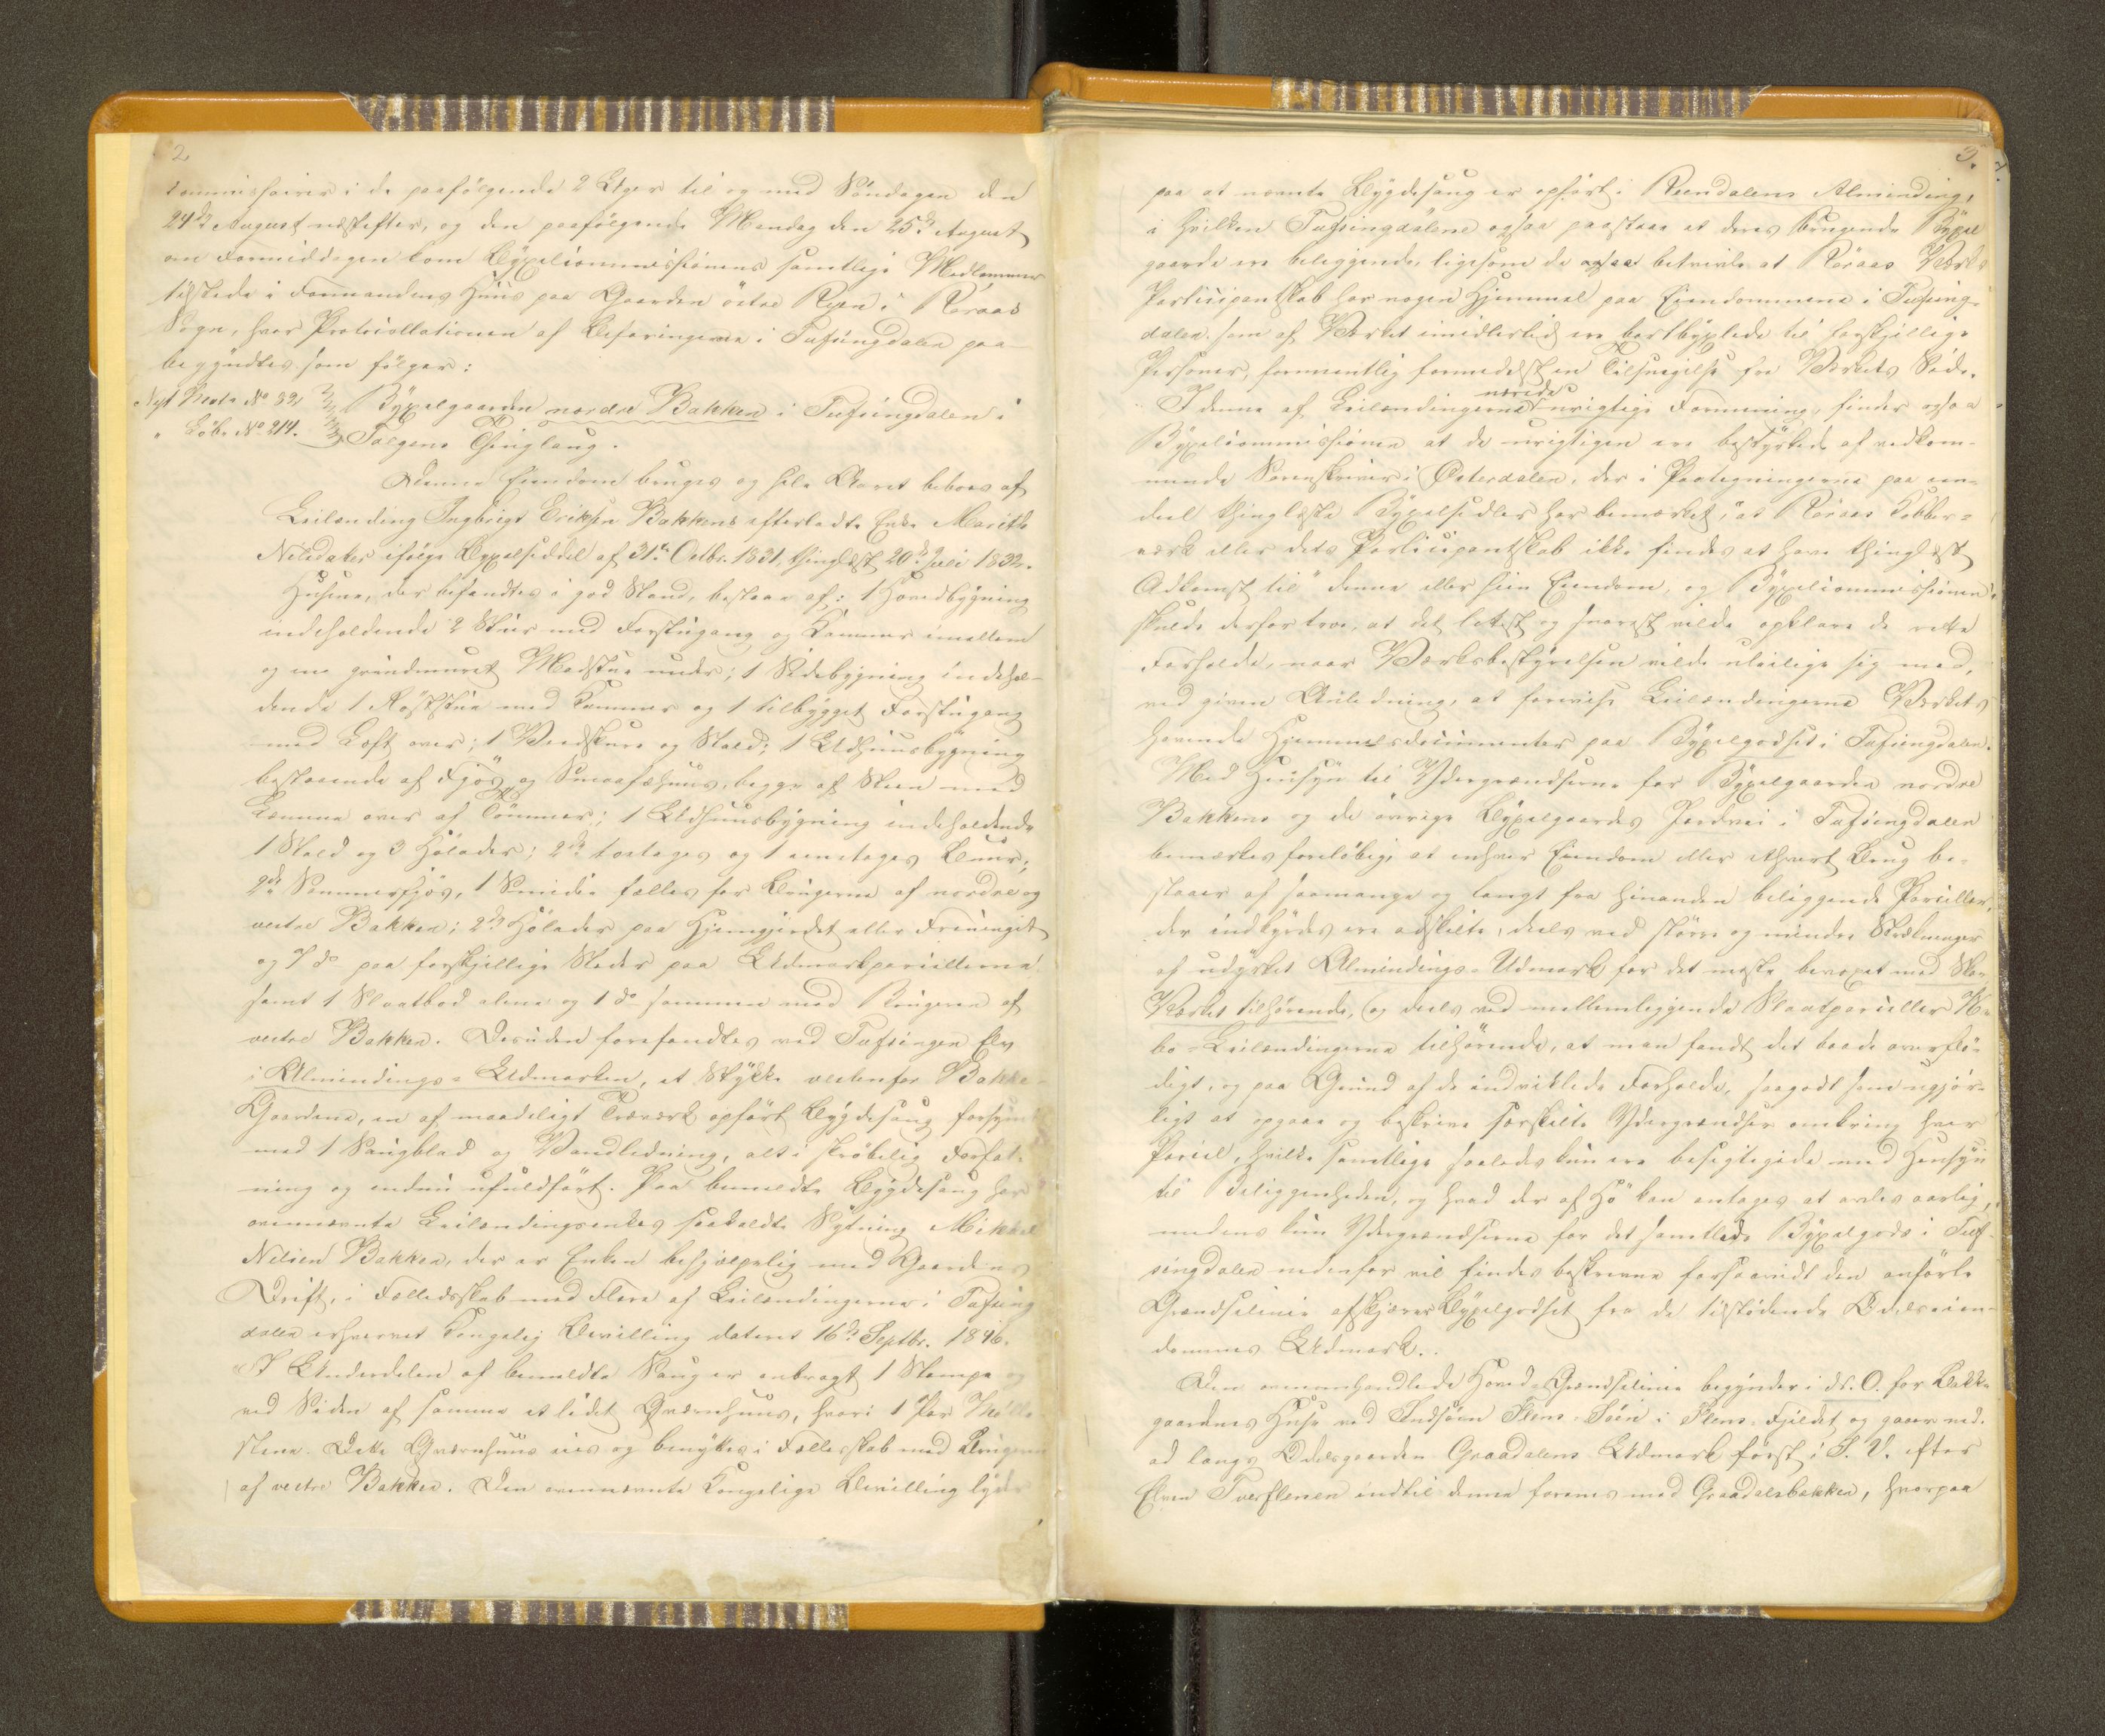 2.
commissairer i de paafölgende 2 Uger til og med Söndagen den
24de August næstefter, og den paafölgende Mandag den 25de August
om Formiddagen kom Bÿxelcommissionens samtlige Medlemmer
tilstede i Formandens Huus paa Gaarden östre Rÿen i Röraas
Sogn, hvor Protocollationen af Befaringerne i Tufsingdalen paa-
begÿndtes som fölger:
Nyt Matr No 39
" Löbe No 214.
Bÿxelgaarden nordre Bakken i Tufsingdalen i
Tolgens Thinglaug.
Denne Eiendom bruges og hele Aaret beboes af
Leilænding Ingbrigt Eriksen Bakkens efterladte Enke Marith
Nilsdatter ifölge Bÿxelseddel af 31te Octbr. 1831, thinglæst 20de Juli 1832.
Husene, der befandtes i god Stand, bestaae af: 1 Hovedbÿgning
indeholdende 2 Stuer med Forstugang og Kammer imellem
og en grundmuret Madstue under; 1 Sidebÿgning indehol-
dende 1 Röststue med Kammer og 1 tilbÿgget Forstugang
med Loft over; 1 Vedskuur og Stald; 1 Udhuusbÿgning
bestaaende af Fjös og Smaafæhuus, begge af Steen med
Lemme over af Tömmer; 1 Udhuusbÿgning indeholdende
1 Stald og 3 Hölader; 2de toetages og 1 eenetages Buur;
2de Sommerfjös, 1 Smidie fælles for Brugerne af nordre og
vestre Bakken; 2de Hölader paa Hjemgjerdet eller
og 7 do paa forskjellige Steder paa Udmarkparcellerne
samt 1 Slaatbod alene og 1 do sammen med Brugeren af
vestre Bakken. Desuden forefandtes ved Tufsingen Elv
i Almindings-Udmarken, et Stÿkke vestenfor Bakke-
Gaardene, en af maadeligt Træværk opfört Bÿgdesaug forsÿnt
med 1 Saugblad og Vandledning, alt i skröbelig Forfat-
ning og endnu ufuldfört. Paa bemeldte Bÿgdesaug har
ovennævnte Leilændingsenkes saakaldte Sÿtning Mikkel
Nilsen Bakken, der er Enken behjælpelig med Gaardens
Drift, i Fælledsskab med Flere af Leilændingerne i Tufsing-
dalen erhvervet Kongelig Bevilling dateret 16de Septbr. 1846.
I Underdelen af bemeldte Saug er anbragt 1 Stampe og
ved Siden af samme et lidet Qværnhuus, hvori 1 Par Mölle-
stene. Dette Qværnhuus eies og benÿttes i Fællesskab med Brugeren
af vestre Bakken. Den ovennævnte Kongelige Bevilling lÿder
3.
paa at nævnte Bÿgdesaug er opfört i Reendalens Alminding,
i hvilken Tufsingdölene ogsaa paastaae at deres brugende Bÿxel
gaarde ere beliggende, ligesom de ogsaa betvivle at Röraas Værks
Participantskab har nogen Hjemmel paa Eiendommene i Tufsing-
dalen som af Værket imidlertid ere bortbÿxlede til forskjellige
Personer, formeentlig formedelst en Tilsnigelse fra Værkets Side.
I denne af Leilændingerne nærede urigtige Formening, finder ogsaa
Bÿxelcommissionen at de urigtigen ere bestÿrkede af vedkom-
mende Sorenskriver i Österdalen, der i Paategningerne paa een-
deel thinglæste Bÿxelsedler har bemærket, "at Röraas Kobber-
værk eller dets Participantskab ikke findes at have thinglæst
Adkomst til" denne eller hiin Eiendom, og Bÿxelcommissionen
skulde derfor troe, at det lettest og snarest vilde opklare de rette
Forholde, naar Værksbestÿrelsen vilde uleilige sig med,
ved given Anledning, at forevise Leilændingerne Værkets
havende Hjemmelsdocumenter paa Bÿxelgodset i Tufsingdalen.
Med Hensÿn til Ydergrændserne for Bÿxelgaarden nordre
Bakkens og de övrige Bÿxelgaardes Jordvei i Tufsingdalen
bemærkes foreløbig, at enhver Eiendom eller ethvert Brug be-
staaer af saamange og langt fra hinanden beliggende Parceller,
der indbÿrdes ere adskilte, deels ved större og mindre Strækninger
af udÿrket Almindings-Udmark for det meste bevoxet med Skov
Værket tilhörende, og deels ved mellemliggende Slaatparceller Na-
bo-Leilændingerne tilhörende, at man fandt det baade overflö-
digt, og paa Grund af de indviklede Forholde, saagodt som ugjör-
ligt at opgaae og beskrive særskilte Ydergrændser omkring hver
Parcel, hvilke samtlige saaledes kun ere besigtigede med Hensÿn
til Beliggenheden, og hvad der af Hö kan antages at avles aarlig,
medens kun Ydergrændserne for det samtlede Bÿxelgods i Tuf-
singdalen nedenfor vil findes beskrevne forsaavidt den anförte
Grændselinie afskjærer Bÿxelgodset fra de tilstödende Odelseien-
dommes Udmark.
Den ovenomhandlede Hoved-Grændselinie begÿnder i ds. O. for Bakke-
gaardenes Huse ved Indsöen Flens-Söen i Flens-Fjeldet og gaaer ned-
ad langs Odelsgaarden Graadalens Udmark först i S.V. efter
Elven Tverflenen indtil denne forenes med Graadalsbækken, hvorpaa